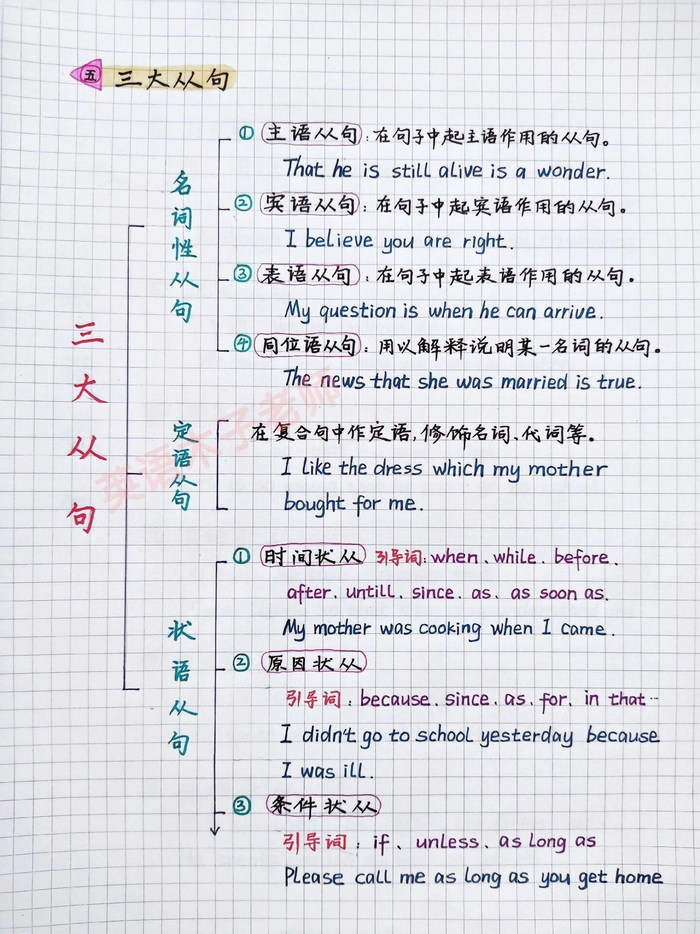 五 三大从句
三大从句
名词性从句
① 主语从句：在句子中起主语作用的从句。
That he is still alive is a wonder.
② 宾语从句：在句子中起宾语作用的从句。
I believe you are right.
③ 表语从句：在句子中起表语作用的从句。
My question is when he can arrive.
④ 同位语从句：用以解释说明某一名词的从句。
The news that she was married is true.
定语从句
在复合句中作定语，修饰名词、代词等。
I like the dress which my mother
bought for me.
状语从句
① 时间状从 引导词：when、while、before、
after、untill、since、as、as soon as.
My mother was cooking when I came.
② 原因状从
引导词：because、since、as、for、in that…
I didn't go to school yesterday because
I was ill.
③ 条件状从
引导词：if、unless、as long as
Please call me as long as you get home
英语木子老师